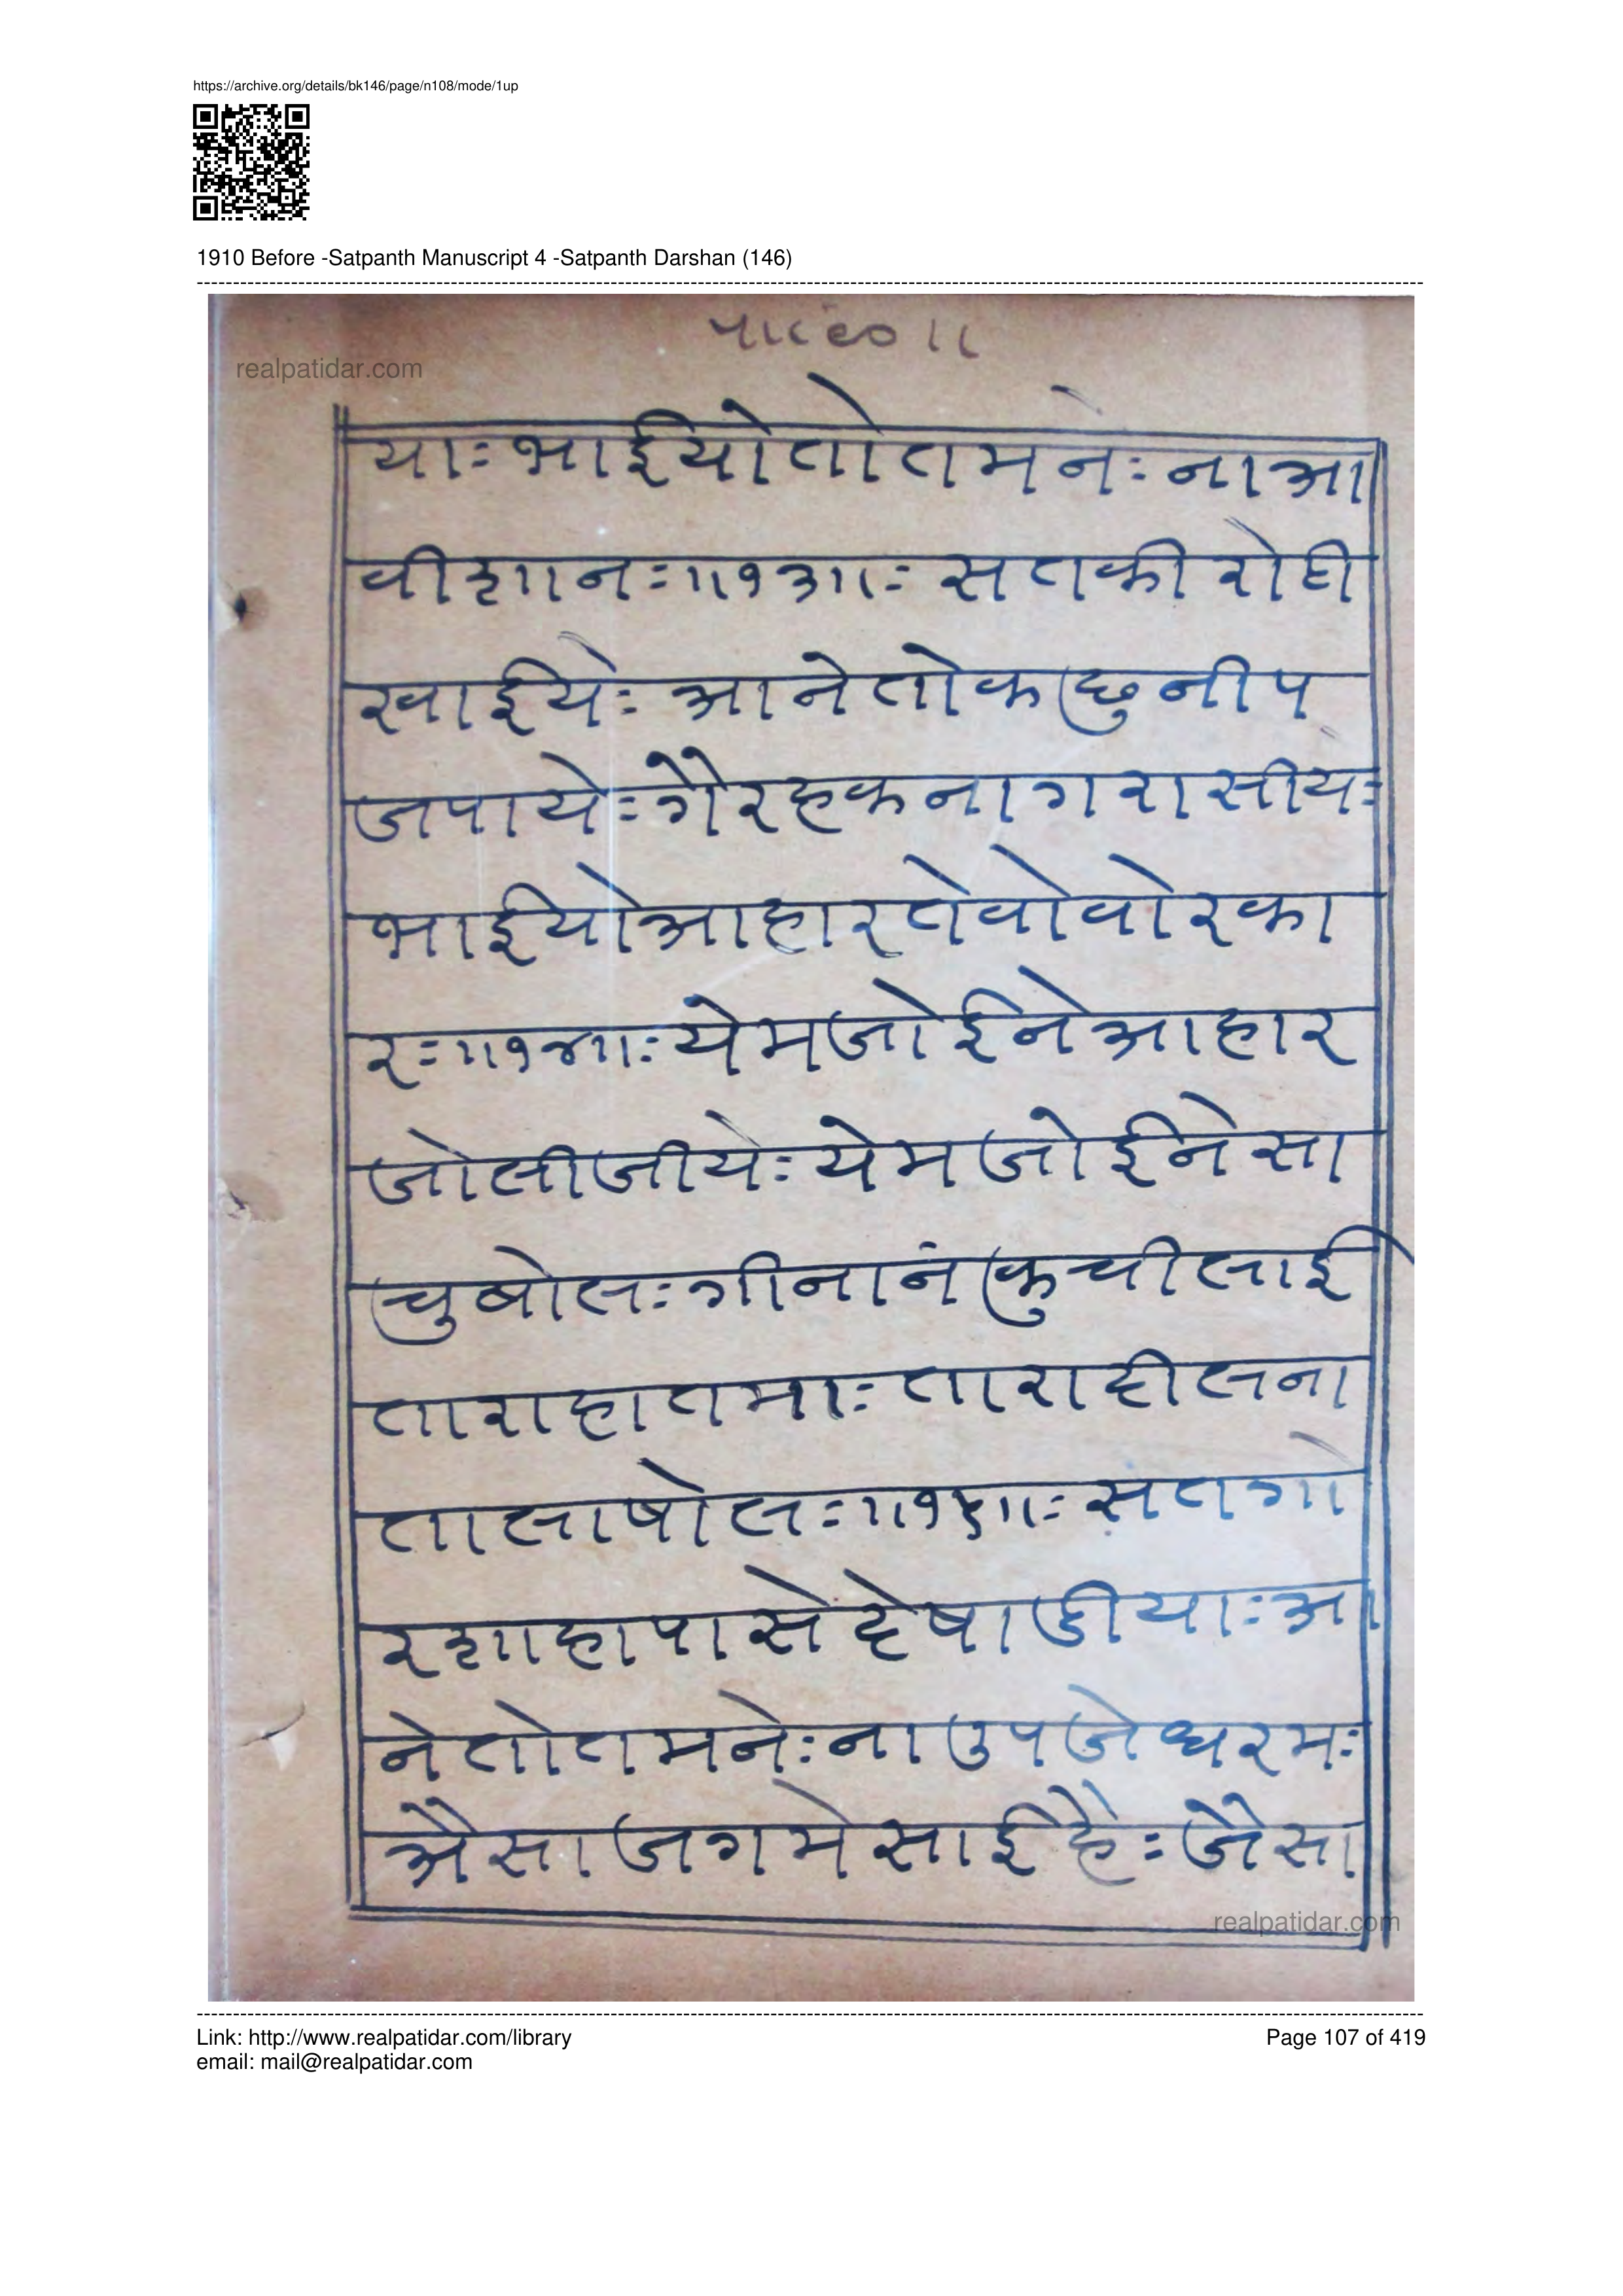 https://archive.org/details/bk146/page/n108/mode/1up
1910 Before -Satpanth Manuscript 4 -Satpanth Darshan (146)
realpatidar.com
याः भाईयोतोतमनेः नाआ
वीशानः॥१३॥ः सतकीरोही
खाईयेः आनेतोकछुनीप
जपायेः गैरहकनागरासीयः
भाईयोआहारतेवोवोरका
रः॥१४॥ः येमजोईनेआहार
जोलीजीयेः येमजोईनेसा
चुषोलः गीनानंकुचीलाई
ताराहातमाः ताराहीलना
तालाषोलः॥१५॥ः सतगो
रशाहापासेदेषाडीयाः आ
नेतोतमनेः नाउपजेधरमः
अैसाजगमेसाईहैः जैसा
realpatidar.com
Link: http://www.realpatidar.com/library
Page 107 of 419
email: mail@realpatidar.com